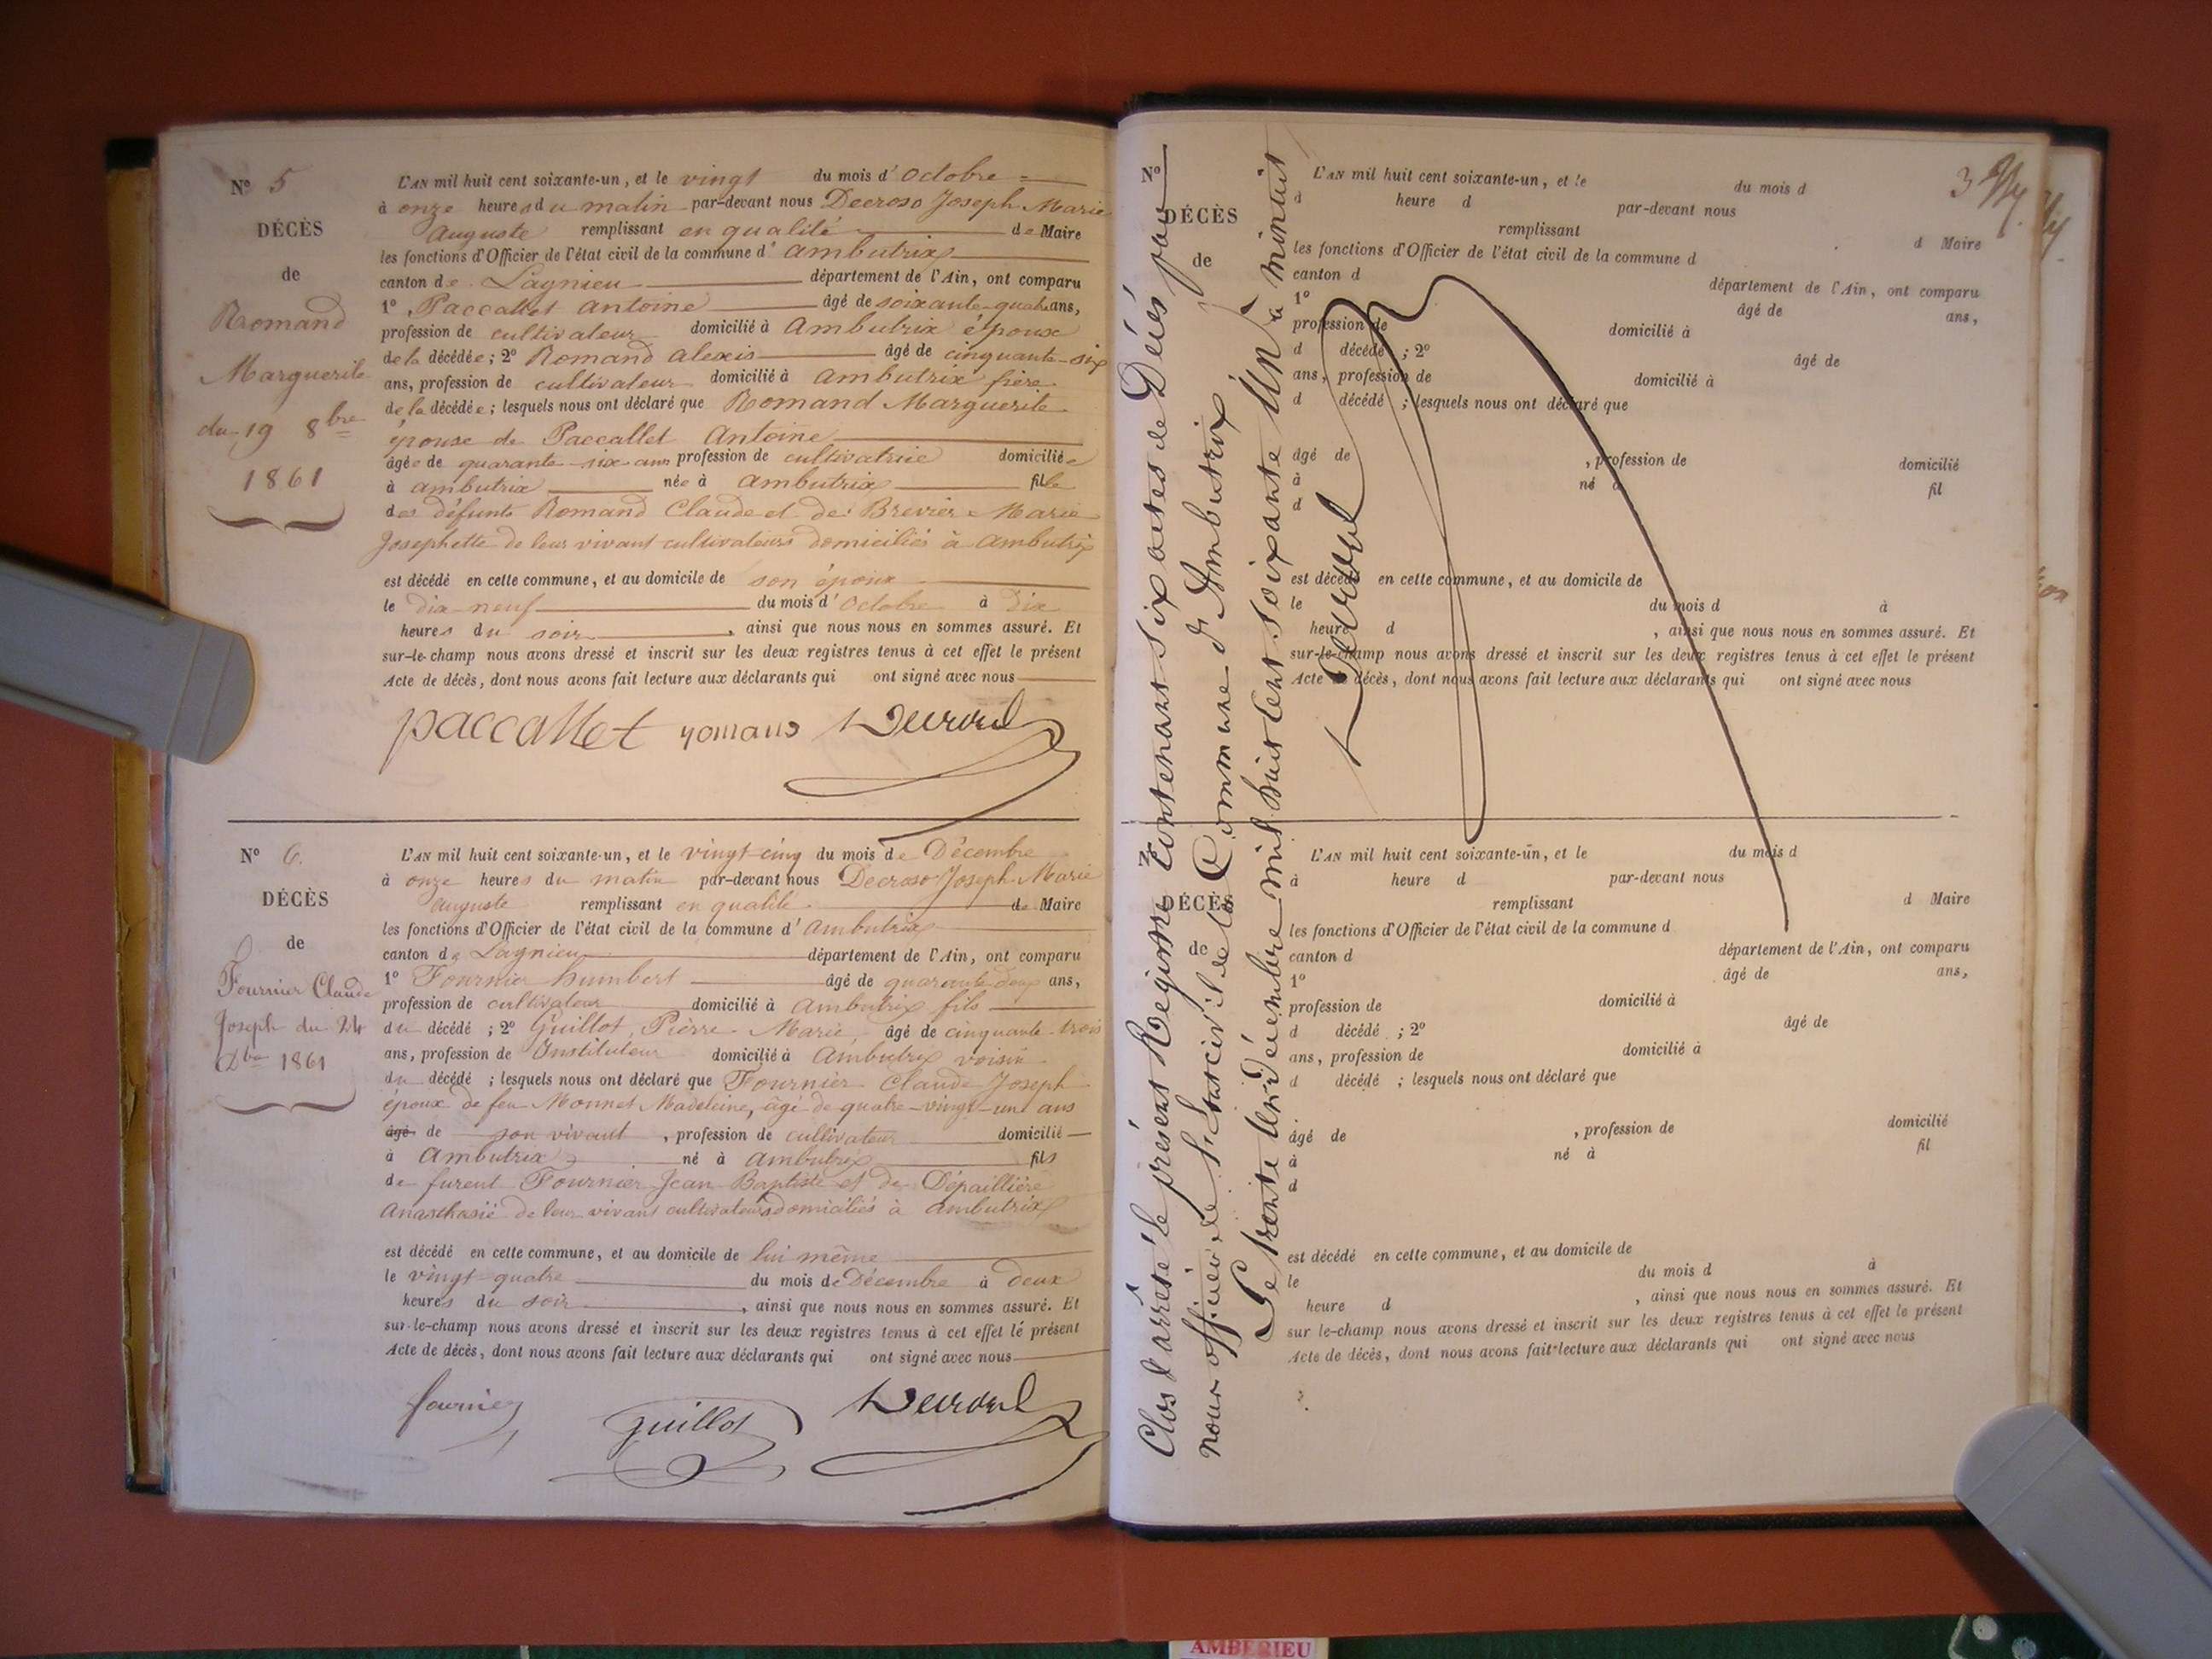 N° 5
DÉCÈS
de
Romand
Marguerite
du 19 8bre
1861
L'AN mil huit cent soixante-un, et le vingt du mois d'Octobre
à onze heures du matin par-devant nous Decroso Joseph Marie
Auguste remplissant en qualité de Maire
les fonctions d'Officier de l'état civil de la commune d'ambutrix
canton de Lagnieu département de l'Ain, ont comparu
1° Paccallet Antoine âgé de soixante-quatre ans,
profession de cultivateur domicilié à Ambutrix époux
de la décédée; 2° Romand alexis âgé de cinquante-six
ans, profession de cultivateur domicilié à ambutrix frère
de la décédée; lesquels nous ont déclaré que Romand Marguerite
épouse de Paccallet Antoine
âgée de quarante-six ans profession de cultivatrice domiciliée
à ambutrix née à ambutrix fille
des défunts Romand Claude et de Brevier Marie
Josephette de leur vivant cultivateurs domiciliés à ambutrix
est décédé en cette commune, et au domicile de son époux
le dix-neuf du mois d'Octobre à dix
heures du soir, ainsi que nous nous en sommes assuré. Et
sur-le-champ nous avons dressé et inscrit sur les deux registres tenus à cet effet le présent
Acte de décès, dont nous avons fait lecture aux déclarants qui ont signé avec nous
paccallet romand Decroso
N° 6.
DÉCÈS
de
Fournier Claude
Joseph du 24
Xbre 1861
L'AN mil huit cent soixante-un, et le vingt-cinq du mois de Décembre
à onze heures du matin par-devant nous Decroso Joseph Marie
auguste remplissant en qualité de Maire
les fonctions d'Officier de l'état civil de la commune d'ambutrix
canton de Lagnieu département de l'Ain, ont comparu
1° Fournier humbert âgé de quarante-deux ans,
profession de cultivateur domicilié à ambutrix fils
du décédé; 2° Guillot, Pierre-Marie, âgé de cinquante-trois
ans, profession de Instituteur domicilié à ambutrix voisin
du décédé; lesquels nous ont déclaré que Fournier Claude Joseph
époux de feu Monnet Madeleine, âgé de quatre-vingt-un ans
âgé de son vivant, profession de cultivateur domicilié
à ambutrix né à ambutrix fils
de furent Fournier Jean-Baptiste et de Dépaillière
Anasthasie de leur vivant cultivateurs domiciliés à ambutrix
est décédé en cette commune, et au domicile de lui même
le vingt-quatre du mois de Décembre à deux
heures du soir, ainsi que nous nous en sommes assuré. Et
sur-le-champ nous avons dressé et inscrit sur les deux registres tenus à cet effet le présent
Acte de décès, dont nous avons fait lecture aux déclarants qui ont signé avec nous
fournier guillot Decroso
Clos & arrêté le présent Registre contenant six actes de Décès par
nous officier de l'Etat civil de la Commune d'Ambutrix
Le trente un Décembre mil huit cent soixante Un à minuit
Decroso
3
N°
DÉCÈS
de
L'AN mil huit cent soixante-un, et le du mois d
à heure d par-devant nous
remplissant d Maire
les fonctions d'Officier de l'état civil de la commune d
canton d département de l'Ain, ont comparu
1° âgé de ans,
profession de domicilié à
d décédé ; 2° âgé de
ans, profession de domicilié à
d décédé ; lesquels nous ont déclaré que
âgé de , profession de domicilié
à né à fil
d
est décédé en cette commune, et au domicile de
le du mois d à
heure d , ainsi que nous nous en sommes assuré. Et
sur-le-champ nous avons dressé et inscrit sur les deux registres tenus à cet effet le présent
Acte de décès, dont nous avons fait lecture aux déclarants qui ont signé avec nous
N°
DÉCÈS
de
L'AN mil huit cent soixante-un, et le du mois d
à heure d par-devant nous
remplissant d Maire
les fonctions d'Officier de l'état civil de la commune d
canton d département de l'Ain, ont comparu
1° âgé de ans,
profession de domicilié à
d décédé ; 2° âgé de
ans, profession de domicilié à
d décédé ; lesquels nous ont déclaré que
âgé de , profession de domicilié
à né à fil
d
est décédé en cette commune, et au domicile de
le du mois d à
heure d , ainsi que nous nous en sommes assuré. Et
sur le-champ nous avons dressé et inscrit sur les deux registres tenus à cet effet le présent
Acte de décès, dont nous avons fait lecture aux déclarants qui ont signé avec nous
AMBERIEU